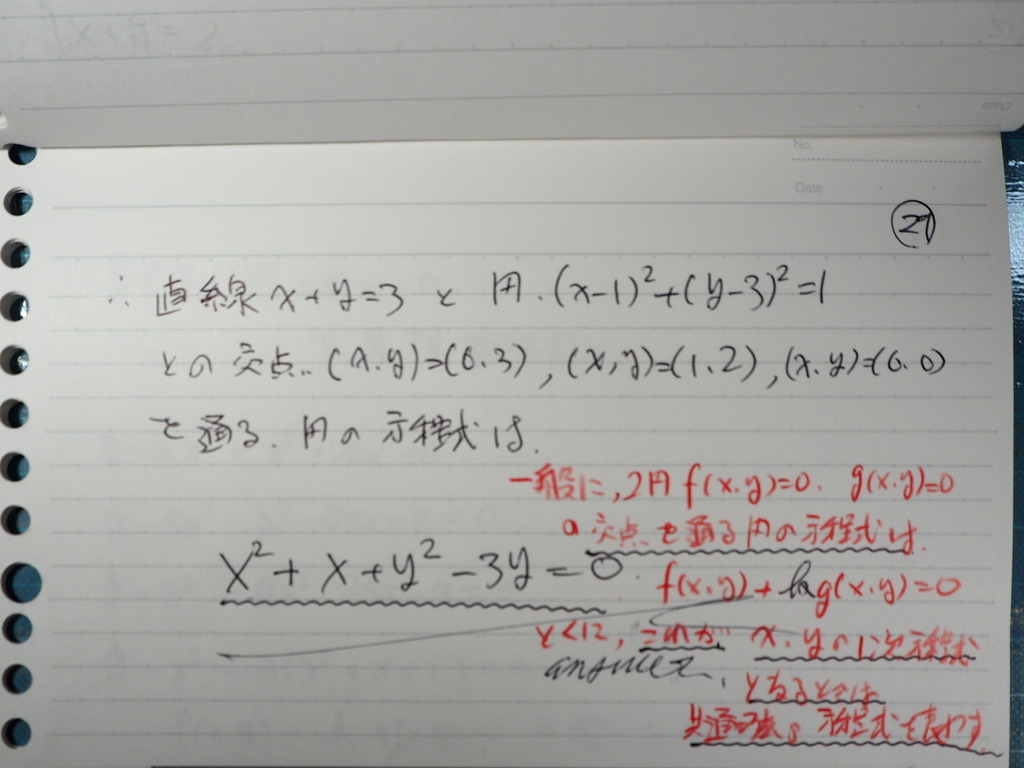 No.
Date
㉗
∴ 直線 x+y=3 と 円.(x-1)²+(y-3)²=1
との交点..(x.y)=(0.3),(x,y)=(1.2),(x.y)=(0.0)
を通る.円の方程式は.
一般に,2円 f(x.y)=0. g(x.y)=0
の交点を通る円の方程式は.
x²+x+y²-3y=0.
f(x.y)+kg(x.y)=0
とくに,これが x.yの1次方程式
answer
となるときは
共通弦の方程式を表わす.